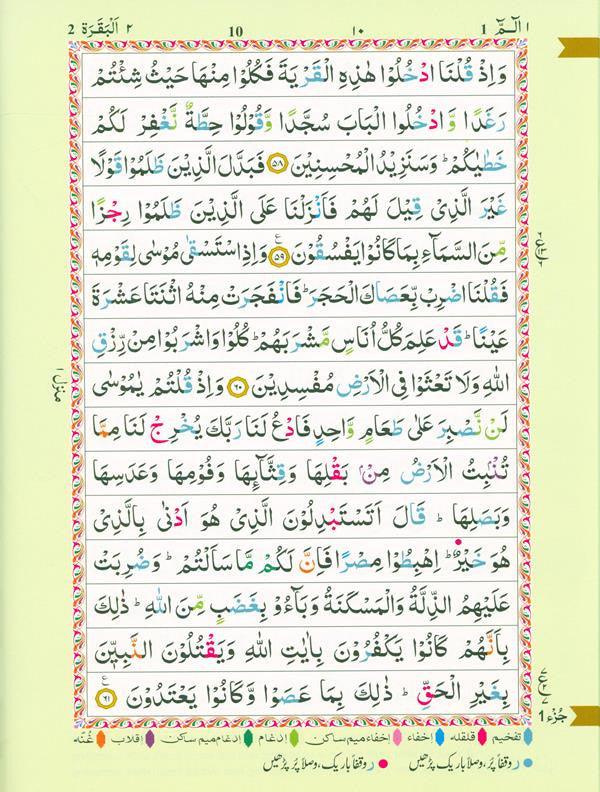 الٓـمّٓ ١ 1 ١٠ 10 ٢ اَلْبَقَرَة 2
وَاِذْ قُلْنَا ادْخُلُوْا هٰذِهِ الْقَرْيَةَ فَكُلُوْا مِنْهَا حَيْثُ شِئْتُمْ
رَغَدًا وَّ ادْخُلُوا الْبَابَ سُجَّدًا وَّقُوْلُوْا حِطَّةٌ نَّغْفِرْ لَكُمْ
خَطٰيٰكُمْ ؕ وَسَنَزِيْدُ الْمُحْسِنِيْنَ ۝۵۸ فَبَدَّلَ الَّذِيْنَ ظَلَمُوْا قَوْلًا
غَيْرَ الَّذِيْ قِيْلَ لَهُمْ فَاَنْزَلْنَا عَلَى الَّذِيْنَ ظَلَمُوْا رِجْزًا
مِّنَ السَّمَآءِ بِمَا كَانُوْا يَفْسُقُوْنَ ۝۵۹ ع وَاِذِ اسْتَسْقٰى مُوْسٰى لِقَوْمِهٖ
فَقُلْنَا اضْرِبْ بِّعَصَاكَ الْحَجَرَ ؕ فَانْفَجَرَتْ مِنْهُ اثْنَتَا عَشْرَةَ
عَيْنًا ؕ قَدْ عَلِمَ كُلُّ اُنَاسٍ مَّشْرَبَهُمْ ؕ كُلُوْا وَاشْرَبُوْا مِنْ رِّزْقِ
اللّٰهِ وَلَا تَعْثَوْا فِى الْاَرْضِ مُفْسِدِيْنَ ۝۶۰ وَاِذْ قُلْتُمْ يٰمُوْسٰى
لَنْ نَّصْبِرَ عَلٰى طَعَامٍ وَّاحِدٍ فَادْعُ لَنَا رَبَّكَ يُخْرِجْ لَنَا مِمَّا
تُنْۢبِتُ الْاَرْضُ مِنْۢ بَقْلِهَا وَقِثَّآئِهَا وَفُوْمِهَا وَعَدَسِهَا
وَبَصَلِهَا ؕ قَالَ اَتَسْتَبْدِلُوْنَ الَّذِيْ هُوَ اَدْنٰى بِالَّذِيْ
هُوَ خَيْرٌ ؕ اِهْبِطُوْا مِصْرًا فَاِنَّ لَكُمْ مَّا سَاَلْتُمْ ؕ وَضُرِبَتْ
عَلَيْهِمُ الذِّلَّةُ وَالْمَسْكَنَةُ وَبَآءُوْ بِغَضَبٍ مِّنَ اللّٰهِ ؕ ذٰلِكَ
بِاَنَّهُمْ كَانُوْا يَكْفُرُوْنَ بِاٰيٰتِ اللّٰهِ وَيَقْتُلُوْنَ النَّبِيّٖنَ
بِغَيْرِ الْحَقِّ ؕ ذٰلِكَ بِمَا عَصَوْا وَّكَانُوْا يَعْتَدُوْنَ ۝۶۱ ع
منزل ۱
جُزْء 1
تفخیم قلقلہ اخفاء اخفاء میم ساکن ادغام ادغام میم ساکن اقلاب غُنّہ
ر وقفاً پُر، وصلاً باریک پڑھیں ر وقفاً باریک، وصلاً پُر پڑھیں